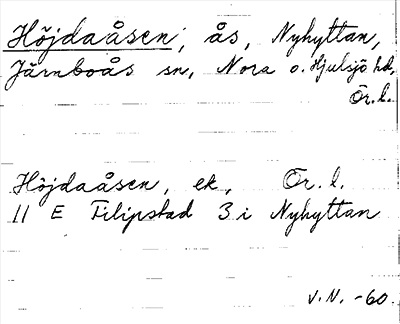 Höjdaåsen, ås, Nyhyttan,
Järnboås sn, Nora o. Hjulsjö hd,
Ör. l.
Höjdaåsen, ek, Ör. l.
11 E Filipstad 3 i Nyhyttan
V.N. -60.